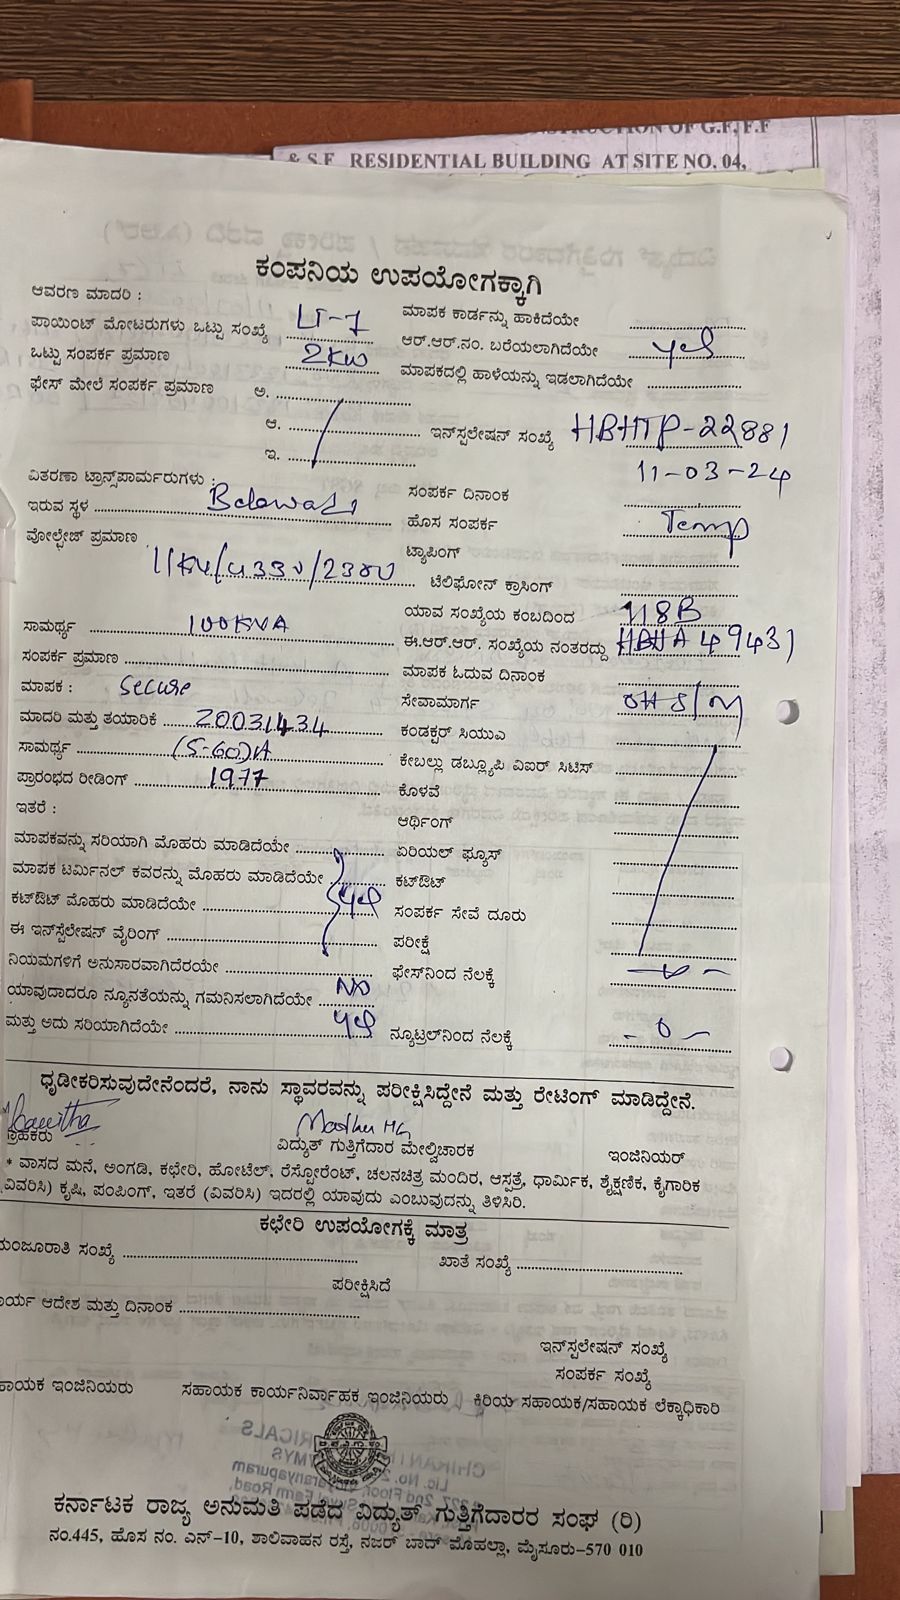 CONSTRUCTION OF G.F, F.F
& S.F RESIDENTIAL BUILDING AT SITE NO. 04,
ಕಂಪನಿಯ ಉಪಯೋಗಕ್ಕಾಗಿ
ಆವರಣ ಮಾದರಿ : LT-7 ಮಾಪಕ ಕಾರ್ಡನ್ನು ಹಾಕಿದೆಯೇ
ಪಾಯಿಂಟ್ ಮೋಟರುಗಳು ಒಟ್ಟು ಸಂಖ್ಯೆ ಆರ್.ಆರ್.ನಂ. ಬರೆಯಲಾಗಿದೆಯೇ yes
ಒಟ್ಟು ಸಂಪರ್ಕ ಪ್ರಮಾಣ 2KW ಮಾಪಕದಲ್ಲಿ ಹಾಳೆಯನ್ನು ಇಡಲಾಗಿದೆಯೇ
ಫೇಸ್ ಮೇಲೆ ಸಂಪರ್ಕ ಪ್ರಮಾಣ ಅ.
ಆ. ಇನ್ಸ್ಟಲೇಷನ್ ಸಂಖ್ಯೆ HBHTP-22881
ಇ. 11-03-24
ವಿತರಣಾ ಟ್ರಾನ್ಸ್‌ಪಾರ್ಮರುಗಳು : ಸಂಪರ್ಕ ದಿನಾಂಕ
ಇರುವ ಸ್ಥಳ Belawadi ಹೊಸ ಸಂಪರ್ಕ Temp
ವೋಲ್ಟೇಜ್ ಪ್ರಮಾಣ ಟ್ಯಾಪಿಂಗ್
11KV/433V/230V ಟೆಲಿಫೋನ್ ಕ್ರಾಸಿಂಗ್
ಯಾವ ಸಂಖ್ಯೆಯ ಕಂಬದಿಂದ 118B
ಸಾಮರ್ಥ್ಯ 100KVA ಈ.ಆರ್.ಆರ್. ಸಂಖ್ಯೆಯ ನಂತರದ್ದು HBHA 49431
ಸಂಪರ್ಕ ಪ್ರಮಾಣ ಮಾಪಕ ಓದುವ ದಿನಾಂಕ
ಮಾಪಕ : Secure ಸೇವಾಮಾರ್ಗ OH S/M
ಮಾದರಿ ಮತ್ತು ತಯಾರಿಕೆ 20031434 ಕಂಡಕ್ಟರ್ ಸಿಯುವಿ
ಸಾಮರ್ಥ್ಯ (5-60)A ಕೇಬಲ್ಲು ಡಬ್ಲ್ಯೂಪಿ ವಿಐರ್ ಸಿಟಿಸ್
ಪ್ರಾರಂಭದ ರೀಡಿಂಗ್ 1977 ಕೊಳವೆ
ಇತರೆ : ಆರ್ಥಿಂಗ್
ಮಾಪಕವನ್ನು ಸರಿಯಾಗಿ ಮೊಹರು ಮಾಡಿದೆಯೇ ಏರಿಯಲ್ ಫ್ಯೂಸ್
ಮಾಪಕ ಟರ್ಮಿನಲ್ ಕವರನ್ನು ಮೊಹರು ಮಾಡಿದೆಯೇ ಕಟ್‌ಔಟ್
ಕಟ್‌ಔಟ್ ಮೊಹರು ಮಾಡಿದೆಯೇ yes ಸಂಪರ್ಕ ಸೇವೆ ದೂರು
ಈ ಇನ್ಸ್ಟಲೇಷನ್ ವೈರಿಂಗ್ ಪರೀಕ್ಷೆ
ನಿಯಮಗಳಿಗೆ ಅನುಸಾರವಾಗಿದೆರಯೇ ಫೇಸ್‌ನಿಂದ ನೆಲಕ್ಕೆ -0-
ಯಾವುದಾದರೂ ನ್ಯೂನತೆಯನ್ನು ಗಮನಿಸಲಾಗಿದೆಯೇ NO
ಮತ್ತು ಅದು ಸರಿಯಾಗಿದೆಯೇ yes ನ್ಯೂಟ್ರಲ್‌ನಿಂದ ನೆಲಕ್ಕೆ -0-
ಧೃಡೀಕರಿಸುವುದೇನೆಂದರೆ, ನಾನು ಸ್ಥಾವರವನ್ನು ಪರೀಕ್ಷಿಸಿದ್ದೇನೆ ಮತ್ತು ರೇಟಿಂಗ್ ಮಾಡಿದ್ದೇನೆ.
Madhu HG
ಗ್ರಾಹಕರು ವಿದ್ಯುತ್ ಗುತ್ತಿಗೆದಾರ ಮೇಲ್ವಿಚಾರಕ ಇಂಜಿನಿಯರ್
* ವಾಸದ ಮನೆ, ಅಂಗಡಿ, ಕಛೇರಿ, ಹೋಟೆಲ್, ರೆಸ್ಟೋರೆಂಟ್, ಚಲನಚಿತ್ರ ಮಂದಿರ, ಆಸ್ಪತ್ರೆ, ಧಾರ್ಮಿಕ, ಶೈಕ್ಷಣಿಕ, ಕೈಗಾರಿಕ
ವಿವರಿಸಿ) ಕೃಷಿ, ಪಂಪಿಂಗ್, ಇತರೆ (ವಿವರಿಸಿ) ಇದರಲ್ಲಿ ಯಾವುದು ಎಂಬುವುದನ್ನು ತಿಳಿಸಿರಿ.
ಕಛೇರಿ ಉಪಯೋಗಕ್ಕೆ ಮಾತ್ರ
ಮಂಜೂರಾತಿ ಸಂಖ್ಯೆ ಖಾತೆ ಸಂಖ್ಯೆ
ಪರೀಕ್ಷಿಸಿದೆ
ಕಾರ್ಯ ಆದೇಶ ಮತ್ತು ದಿನಾಂಕ
ಇನ್ಸ್ಟಲೇಷನ್ ಸಂಖ್ಯೆ
ಸಂಪರ್ಕ ಸಂಖ್ಯೆ
ಸಹಾಯಕ ಇಂಜಿನಿಯರು ಸಹಾಯಕ ಕಾರ್ಯನಿರ್ವಾಹಕ ಇಂಜಿನಿಯರು ಕಿರಿಯ ಸಹಾಯಕ/ಸಹಾಯಕ ಲೆಕ್ಕಾಧಿಕಾರಿ
ಕರ್ನಾಟಕ ರಾಜ್ಯ ಅನುಮತಿ ಪಡೆದ ವಿದ್ಯುತ್ ಗುತ್ತಿಗೆದಾರರ ಸಂಘ (ರಿ)
ನಂ.445, ಹೊಸ ನಂ. ಎನ್-10, ಶಾಲಿವಾಹನ ರಸ್ತೆ, ನಜರ್ ಬಾದ್ ಮೊಹಲ್ಲಾ, ಮೈಸೂರು-570 010